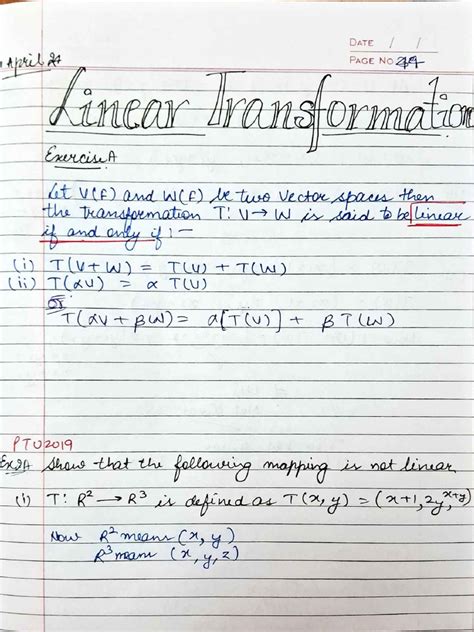 DATE / /
April 24
PAGE NO.
Linear Transformation
Exercise A
Let V(F) and W(F) be two vector spaces then
the transformation T: V→W is said to be linear
if and only if :-
(i) T(V+W) = T(V) + T(W)
(ii) T(αV) = α T(V)
or
T(αV + βW) = α[T(V)] + β T(W)
PTU 2019
Ex 2A Show that the following mapping is not linear
(i) T: R² → R³ is defined as T(x, y) = (x+1, 2y, x+y)
Now R² means (x, y)
R³ means (x, y, z)